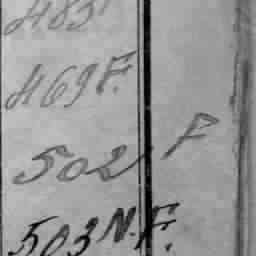 483
469 F.
502 F
503 N.F.